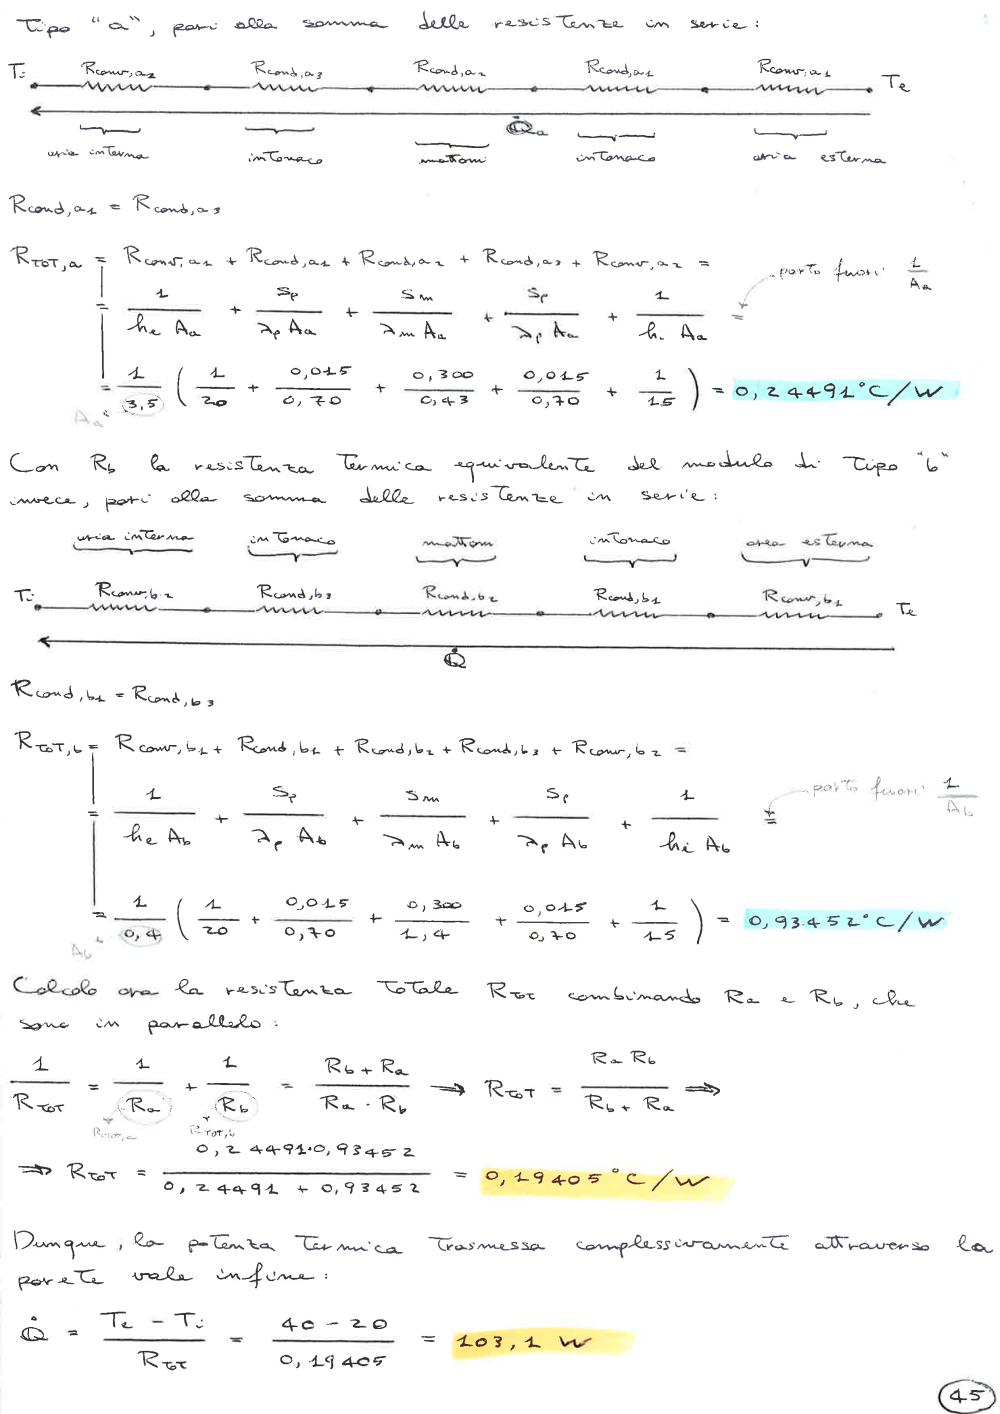 Tipo "a", pari alla somma delle resistenze in serie:
Ti Rconv,a2 Rcond,a3 Rcond,a2 Rcond,a1 Rconv,a1 Te
Q̇a
aria interna intonaco mattoni intonaco aria esterna
Rcond,a1 = Rcond,a3
RTOT,a = Rconv,a1 + Rcond,a1 + Rcond,a2 + Rcond,a3 + Rconv,a2 =
= 1/(he Aa) + Sp/(λp Aa) + Sm/(λm Aa) + Sp/(λp Aa) + 1/(hi Aa) = porto fuori 1/Aa
= 1/3,5 ( 1/20 + 0,015/0,70 + 0,300/0,43 + 0,015/0,70 + 1/15 ) = 0,24491°C/W
Aa
Con Rb la resistenza termica equivalente del modulo di tipo "b"
invece, pari alla somma delle resistenze in serie:
aria interna intonaco mattoni intonaco area esterna
Ti Rconv,b2 Rcond,b3 Rcond,b2 Rcond,b1 Rconv,b1 Te
Q̇
Rcond,b1 = Rcond,b3
RTOT,b = Rconv,b1 + Rcond,b1 + Rcond,b2 + Rcond,b3 + Rconv,b2 =
= 1/(he Ab) + Sp/(λp Ab) + Sm/(λm Ab) + Sp/(λp Ab) + 1/(hi Ab) = porto fuori 1/Ab
= 1/0,4 ( 1/20 + 0,015/0,70 + 0,300/1,4 + 0,015/0,70 + 1/15 ) = 0,93452°C/W
Ab
Calcolo ora la resistenza totale RTOT combinando Ra e Rb, che
sono in parallelo:
1/RTOT = 1/Ra + 1/Rb = (Rb + Ra)/(Ra · Rb) → RTOT = (Ra Rb)/(Rb + Ra) ⇒
RTOT,a RTOT,b
⇒ RTOT = (0,24491·0,93452)/(0,24491 + 0,93452) = 0,19405°C/W
Dunque, la potenza termica trasmessa complessivamente attraverso la
parete vale infine:
Q̇ = (Te - Ti)/RTOT = (40 - 20)/0,19405 = 103,1 W
45